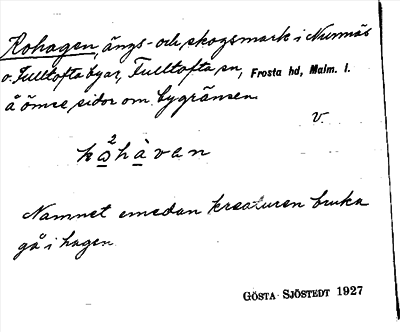 Kohagen, ängs- och skogsmark i Nunnäs
o. Fulltofta byar, Fulltofta sn, Frosta hd, Malm. l.
å ömse sidor om bygränsen.
v.
Namnet emedan kreaturen bruka
gå i hagen.
GÖSTA SJÖSTEDT 1927